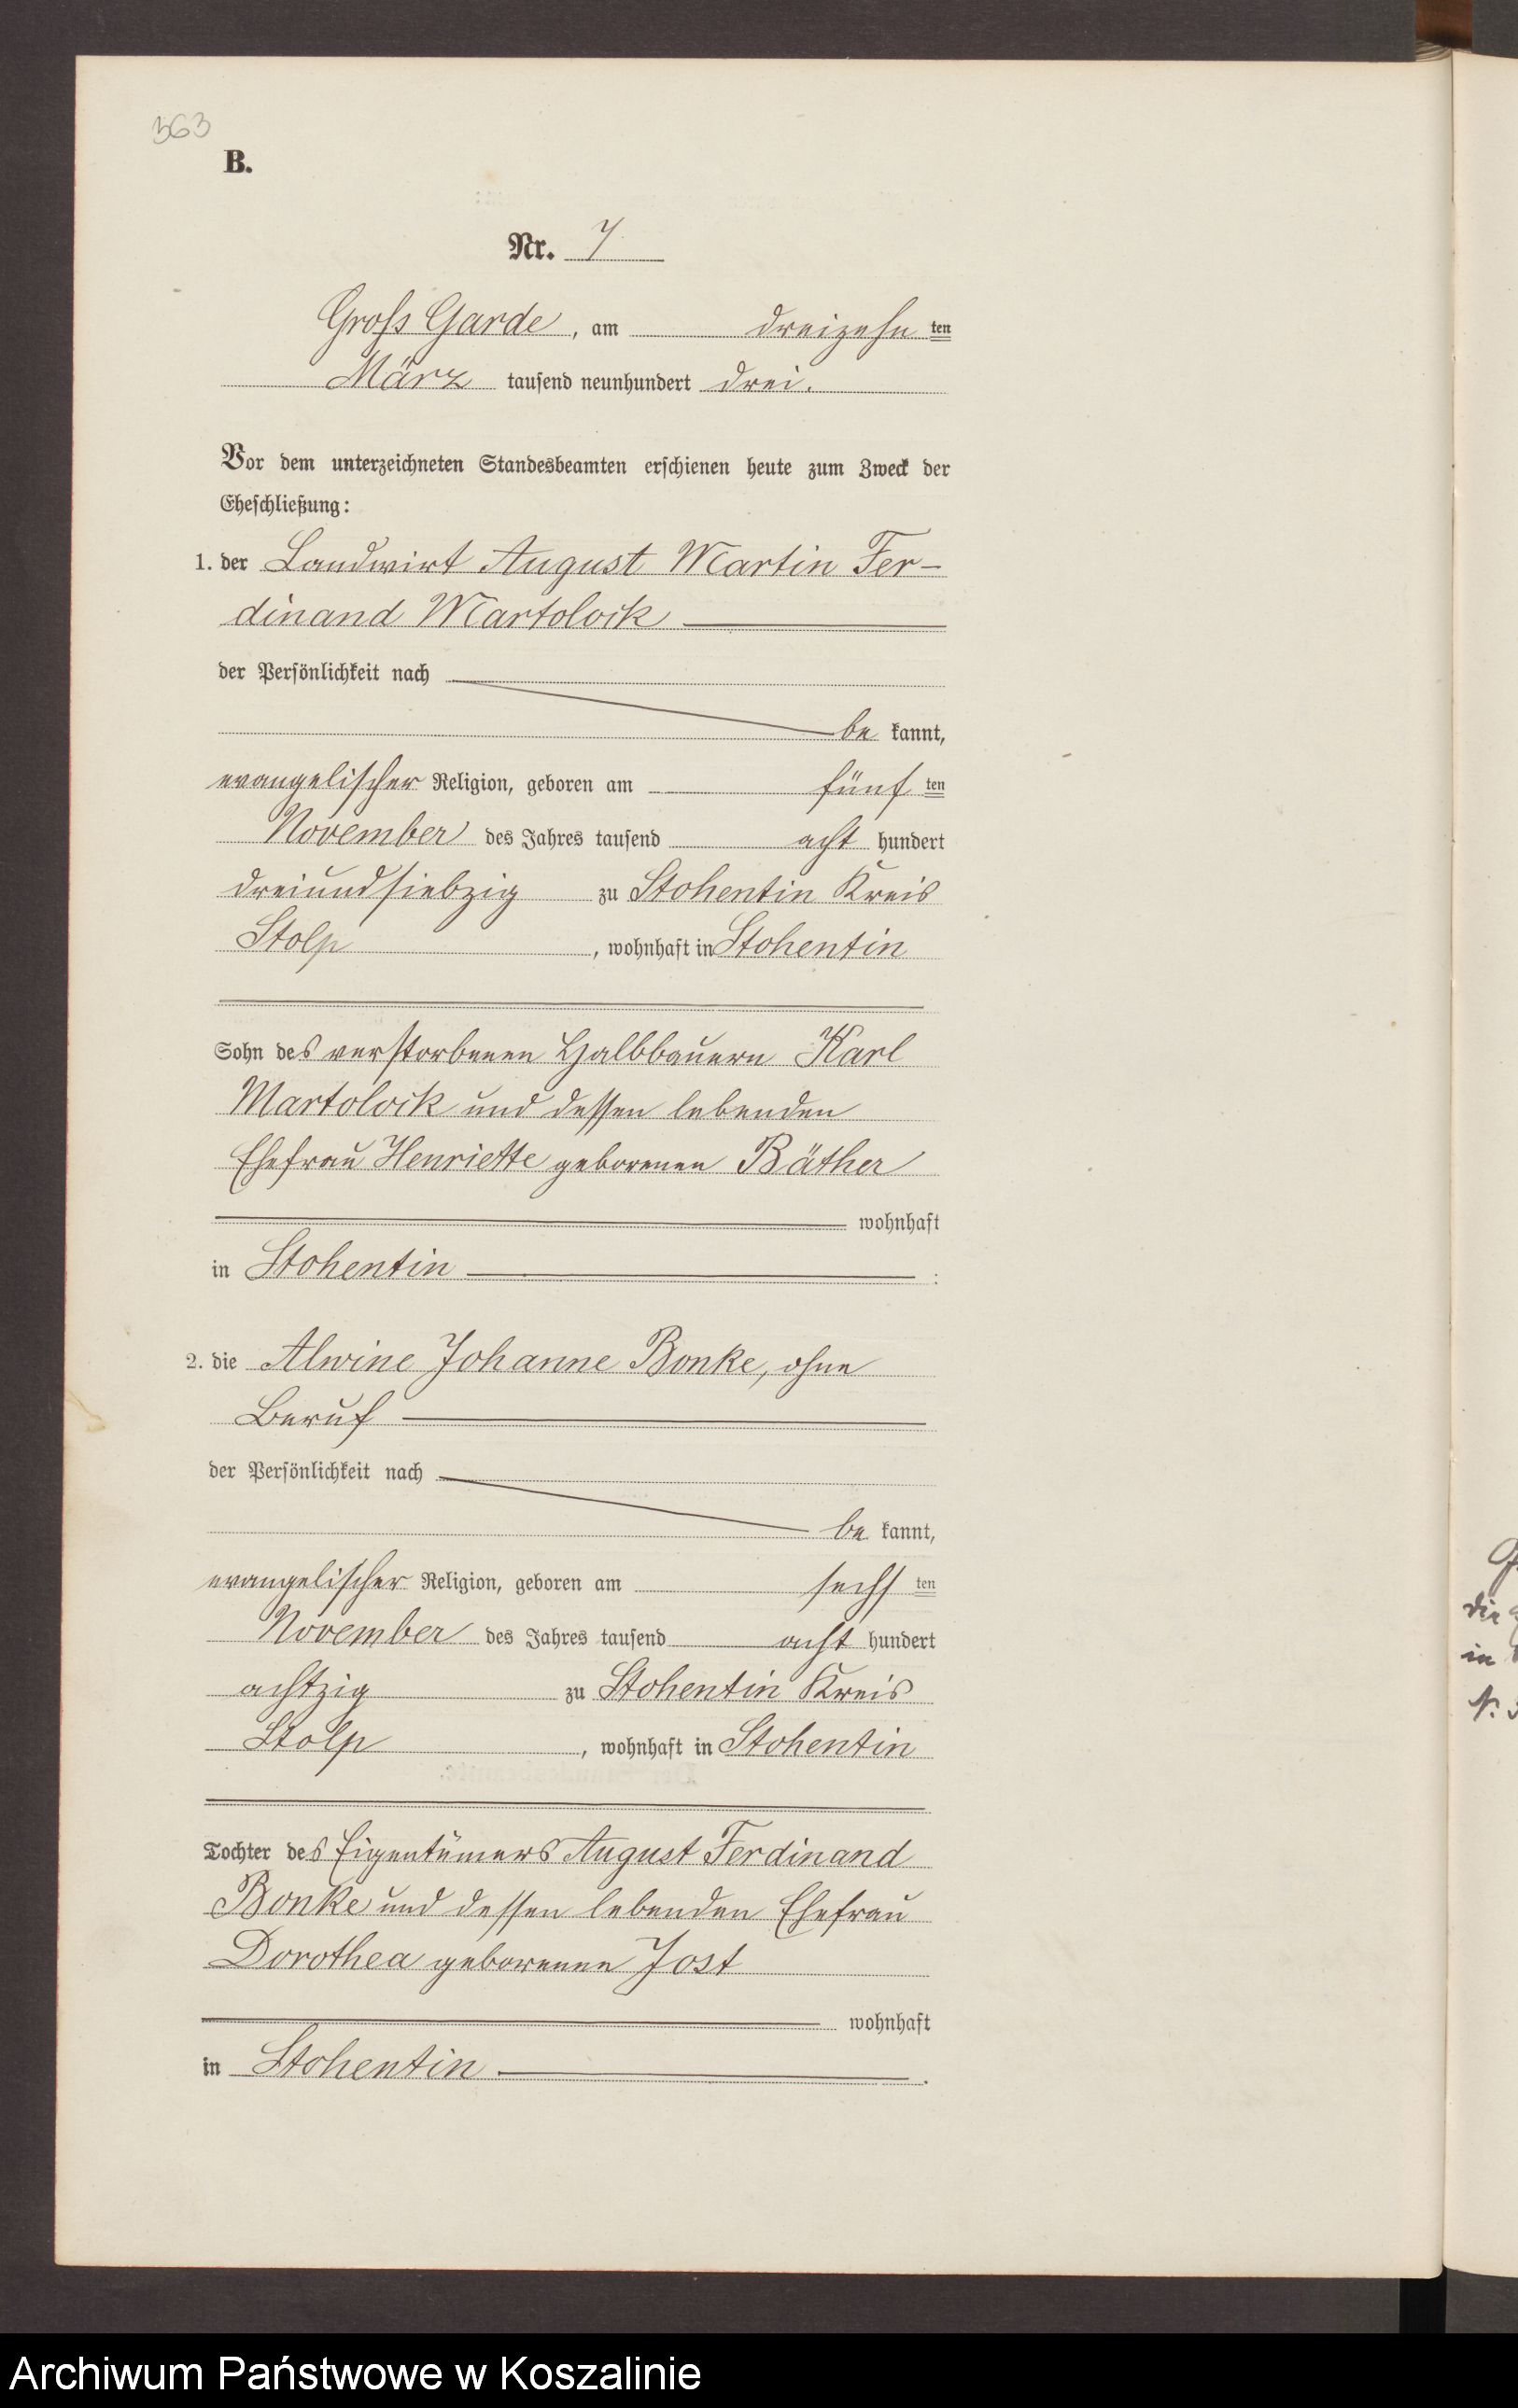 363
B.
Nr. 7
Gross Garde, am dreizehn ten
März tausend neunhundert drei.
Vor dem unterzeichneten Standesbeamten erschienen heute zum Zweck der
Eheschließung:
1. der Landwirt August Martin Fer-
dinand Martolock
der Persönlichkeit nach
be kannt,
evangelischer Religion, geboren am fünf ten
November des Jahres tausend acht hundert
dreiundsiebzig zu Stohentin Kreis
Stolp, wohnhaft in Stohentin
Sohn des verstorbenen Halbbauern Karl
Martolock und dessen lebenden
Ehefrau Henriette geborenen Bäther
wohnhaft
in Stohentin :
2. die Alwine Johanne Bonke, ohne
Beruf
der Persönlichkeit nach
be kannt,
evangelischer Religion, geboren am sechs ten
November des Jahres tausend acht hundert
achtzig zu Stohentin Kreis
Stolp, wohnhaft in Stohentin
Tochter des Eigentümers August Ferdinand
Bonke und dessen lebenden Ehefrau
Dorothea geborenen Jost
wohnhaft
in Stohentin.
die
in
Archiwum Państwowe w Koszalinie